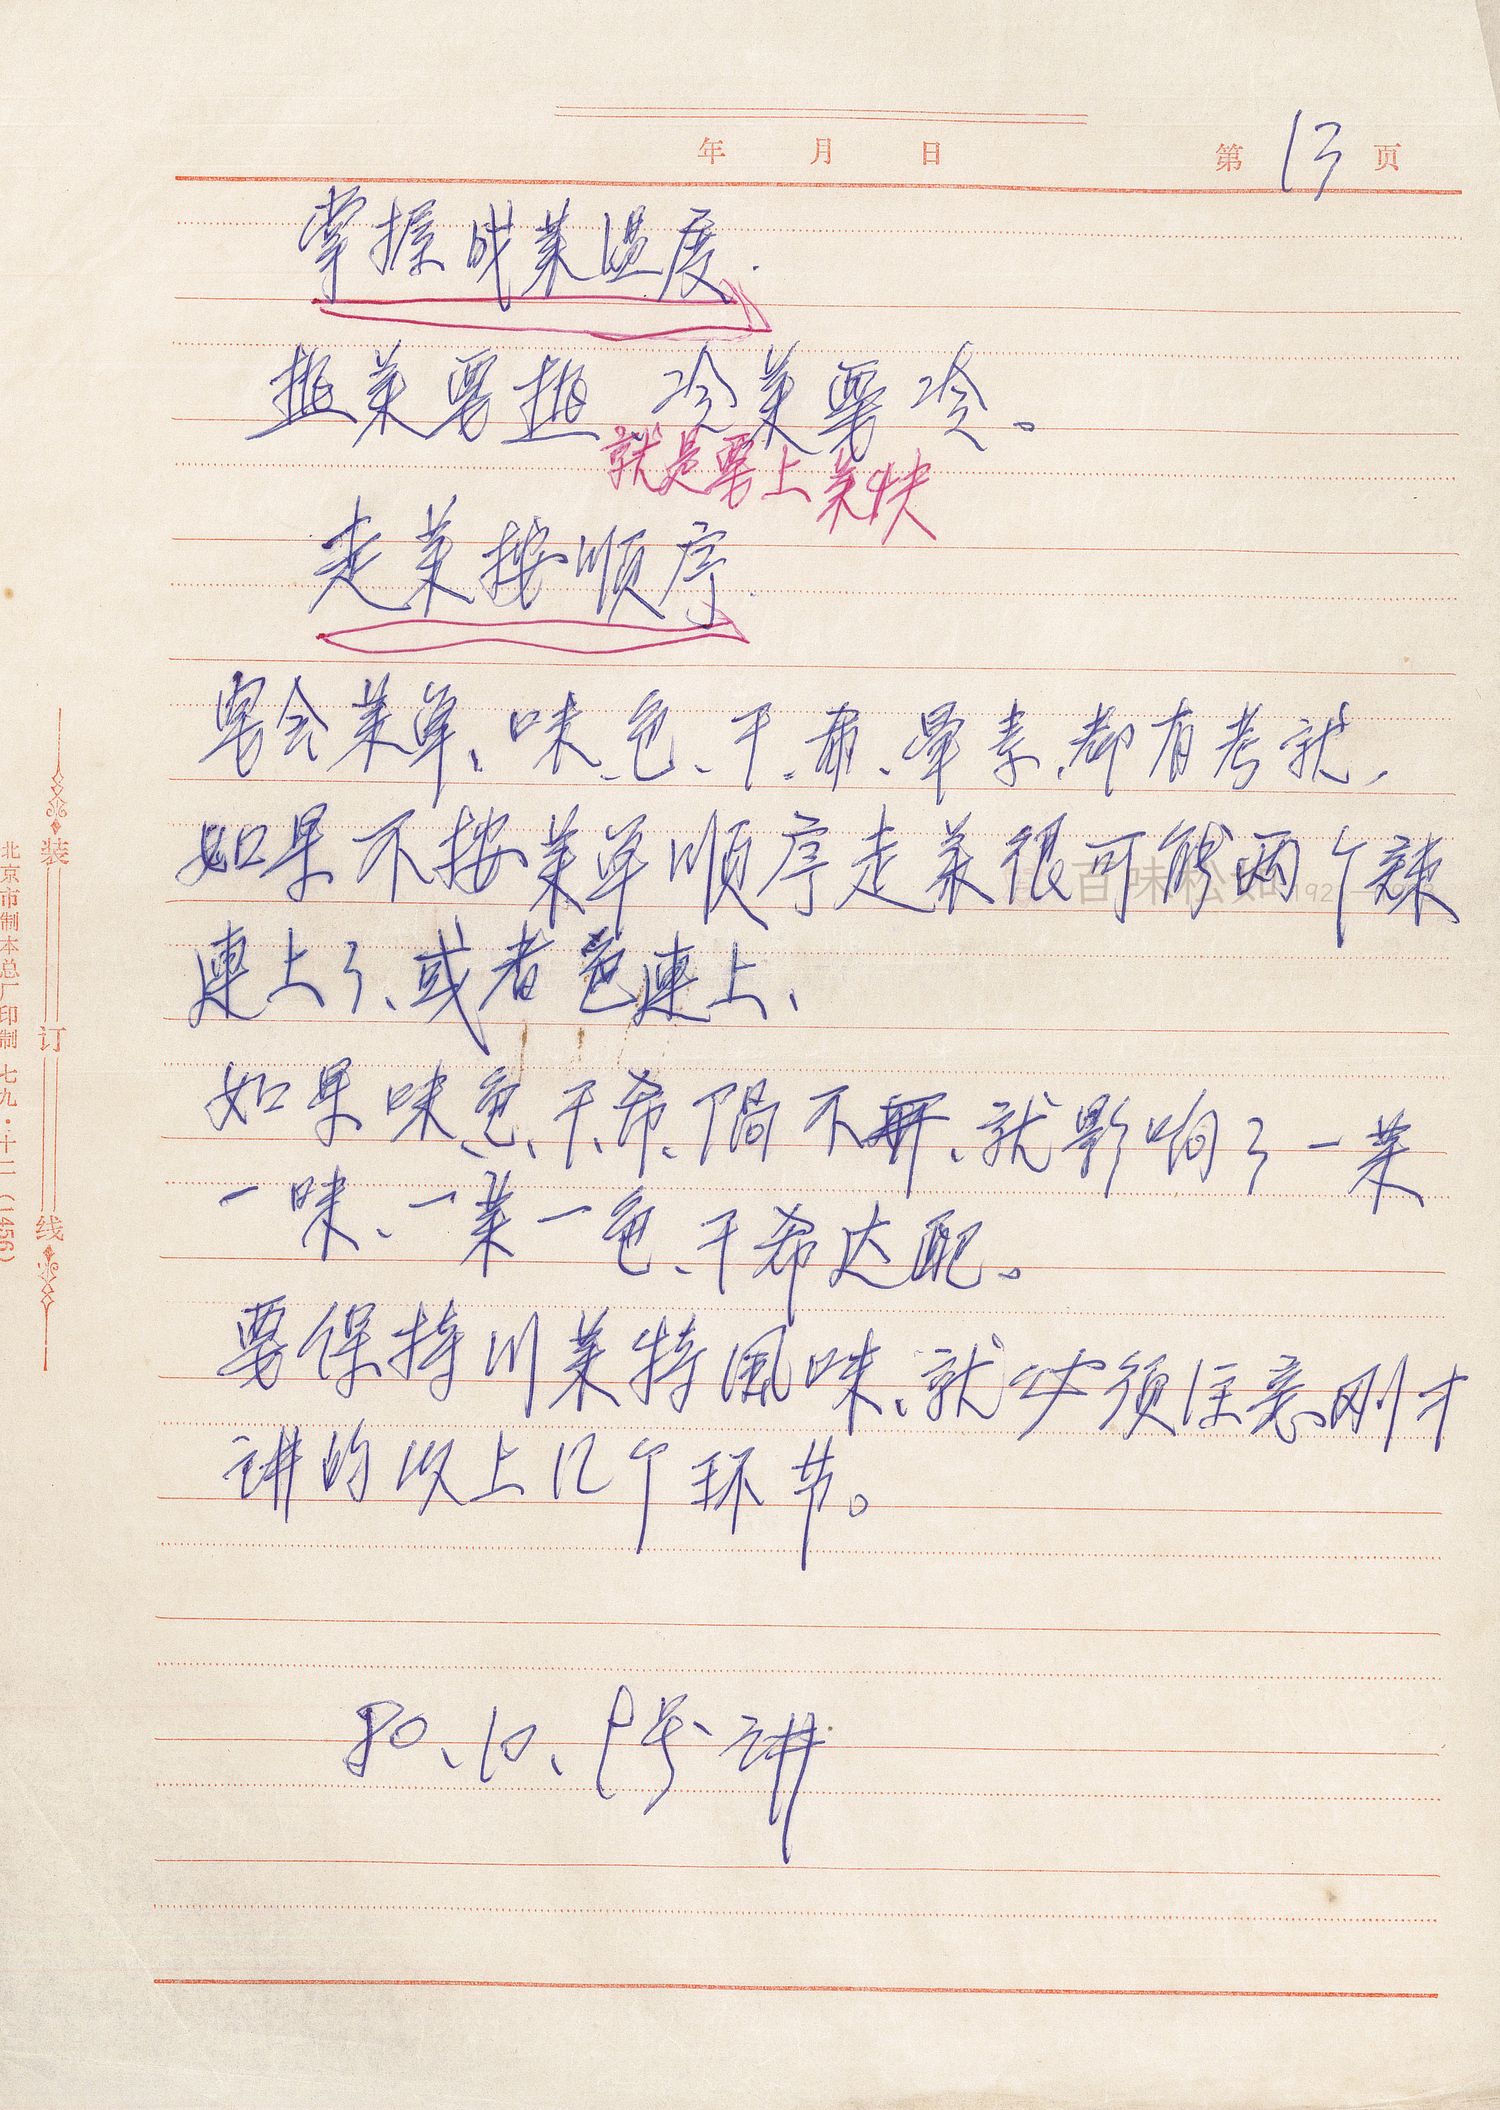 年 月 日 第 13 页
掌握成菜温度.
热菜要热 冷菜要冷。
就是要上菜快
走菜按顺序.
宴会菜单、味、色、干、希、荤素、都有考就,
如果不按菜单顺序走菜很可能两个辣
连上了、或者色连上、
如果味、色、干、希、隔不开、就影响了一菜
一味、一菜一色、干希达配。
要保持川菜特风味、就必须注意刚才
讲的以上几个环节。
80、10、9号、讲
装订线
北京市制本总厂印制 七九·十二(1456)
百味松如